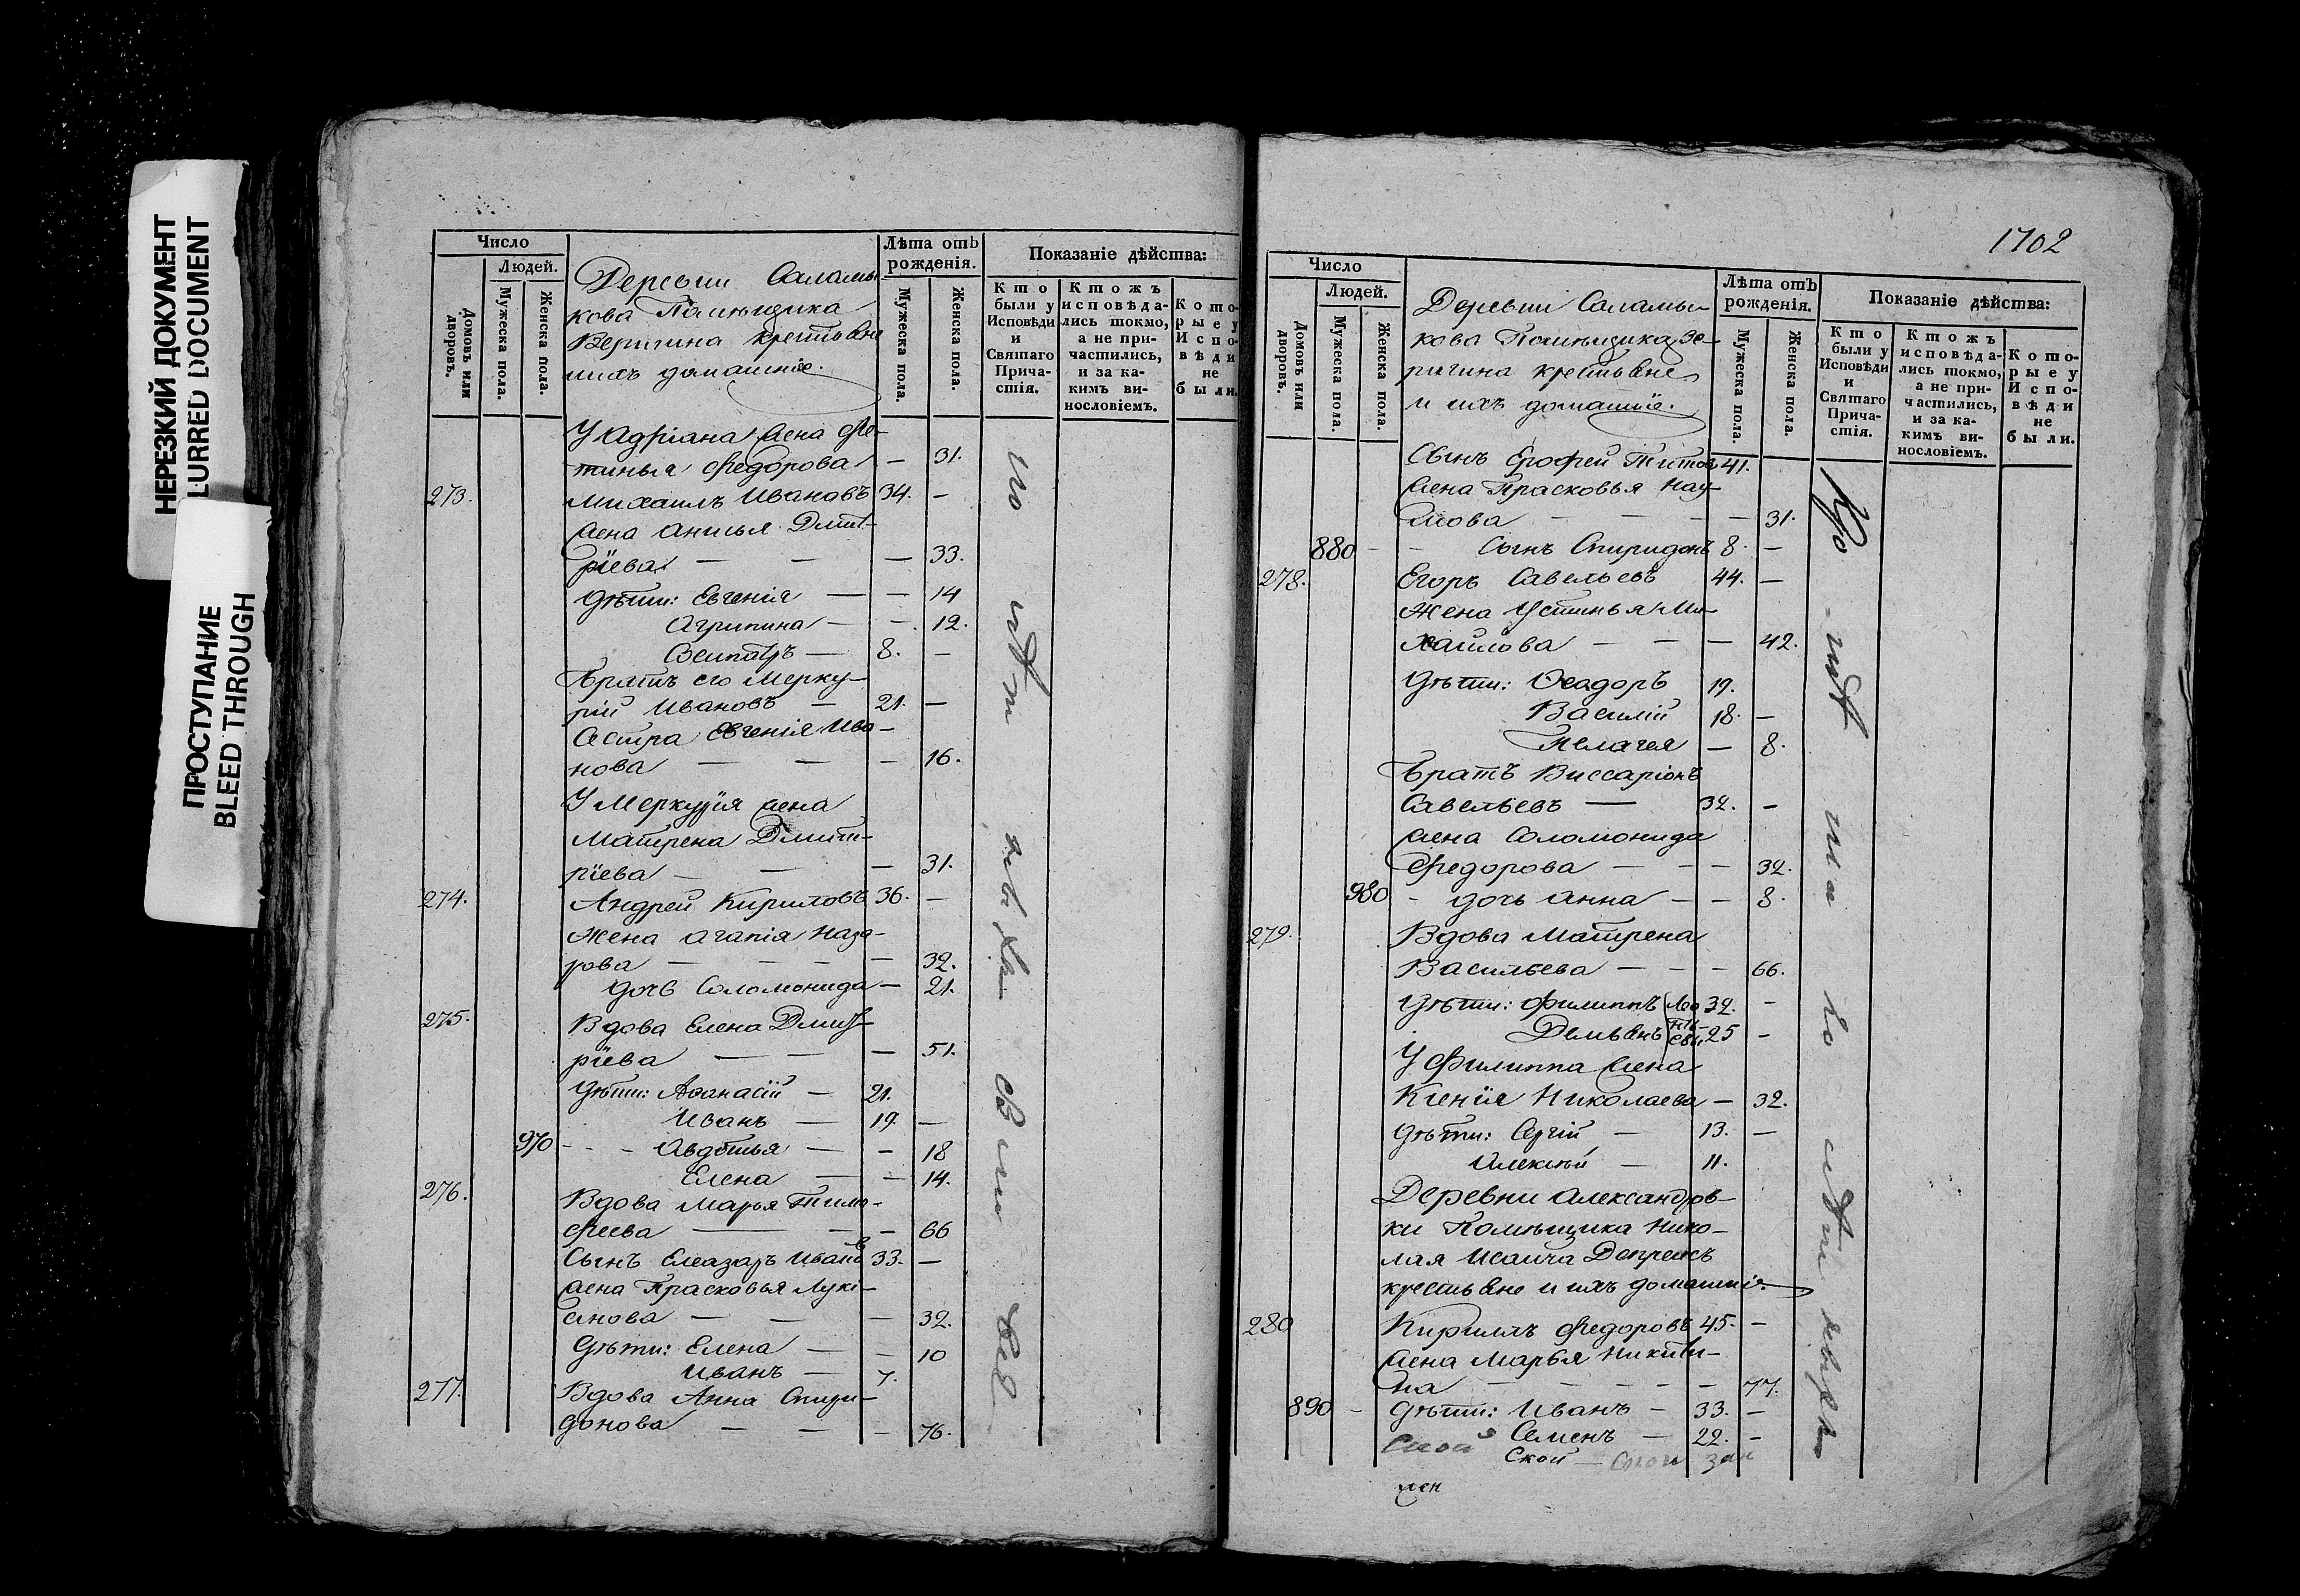 НЕРЕЗКИЙ ДОКУМЕНТ
LURRED DOCUMENT
ПРОСТУПАНИЕ
BLEED THROUGH
Число
Людей.
Домовъ или дворовъ.
Мужеска пола.
Женска пола.
Деревни Саламы-
кова Помѣщика
Веригина крестьяне
ихъ домашніе.
Лѣта отъ рожденія.
Мужеска пола.
Женска пола.
Показаніе дѣйства:
Кто были у Исповѣди и Святаго Причастія.
Ктожъ исповѣда-лись токмо, а не при-частились, и за ка-кимъ ви-нословіемъ.
Кото-рые у Испо-вѣди не были.
У Адріана жена Фе-
тинья Федорова — 31.
273. Михаилъ Ивановъ 34. —
жена Анисья Дмит-
ріева — — — 33.
Дѣти: Евгенія — — 14
Агрипина — — 12.
8. —
Братъ его Мерку-
рій Ивановъ — 21. —
Сестра Евгенія Ива-
нова — — — 16.
У Меркурія жена
Матрена Дмит-
ріева — — — 31.
274. Андрей Кириловъ 36. —
Жена Агапія Наза-
рова — — — — 32.
Дочь Соломонида — 21.
275. Вдова Елена Дмит-
ріева — — — 51.
Дѣти: Аѳанасій — 21.
Иванъ — 19. —
970 - - - Авдотья — — 18
Елена — — 14.
276. Вдова Марья Тимо-
феева — — — 66
Сынъ Елеазаръ Ивановъ 33. —
жена Прасковья Луки-
анова — — — 32.
Дѣти: Елена — — 10
Иванъ — 7.
277. Вдова Анна Спири-
донова — — — 76.
1702
Число
Людей.
Домовъ или дворовъ.
Мужеска пола.
Женска пола.
Деревни Саламы-
кова Помѣщика Ве-
ригина крестьяне
и ихъ домашніе.
Лѣта отъ рожденія.
Мужеска пола.
Женска пола.
Показаніе дѣйства:
Кто были у Исповѣди и Святаго Причастія.
Ктожъ исповѣда-лись токмо, а не при-частились, и за ка-кимъ ви-нословіемъ.
Кото-рые у Испо-вѣди не были.
Сынъ Ерофей Титовъ 41.
жена Прасковья Нау-
мова — — — — 31.
880 - - Сынъ Спиридонъ 8. —
278. Егоръ Савельевъ 44. —
Жена Устинья Ми-
хайлова — — — 42.
Дѣти: Ѳеадоръ 19.
Василій 18. —
Пелагея — 8.
Братъ Виссаріонъ
Савельевъ — 32. —
жена Соломонида
Федорова — — — 32.
980 - дочь Анна — — 8.
279. Вдова Матрена
Васильева — — — 66.
Дѣти: Филиппъ 32. —
Демьянъ 25 —
У Филиппа жена
Ксенія Николаева — 32.
Дѣти: Сергій — 13. —
Алексѣй — 11.
Деревни Александров-
ки Помѣщика Нико-
лая Исаича
крестьяне и ихъ домашніе
280 Кирилъ Федоровъ 45. —
жена Марья Никити-
на — — — — — 77.
890 - Дѣти: Иванъ — 33. —
Семенъ — 22. —
Ской